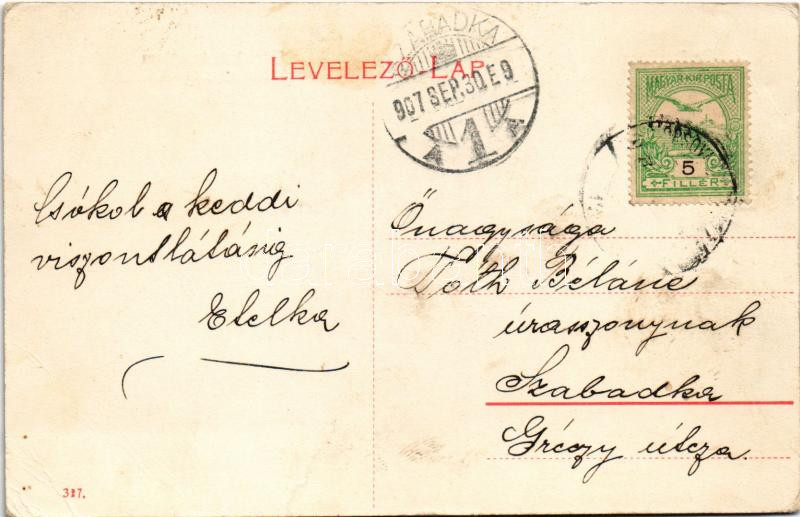 LEVELEZŐ LAP.
SZABADKA
907 SEP. 30. E 9
1
MAGYAR KIR. POSTA
5
FILLÉR
Csókol a keddi
viszontlátásig
Etelka
Őnagysága
Tóth Béláné
úrasszonynak
Szabadka
útcza.
317.